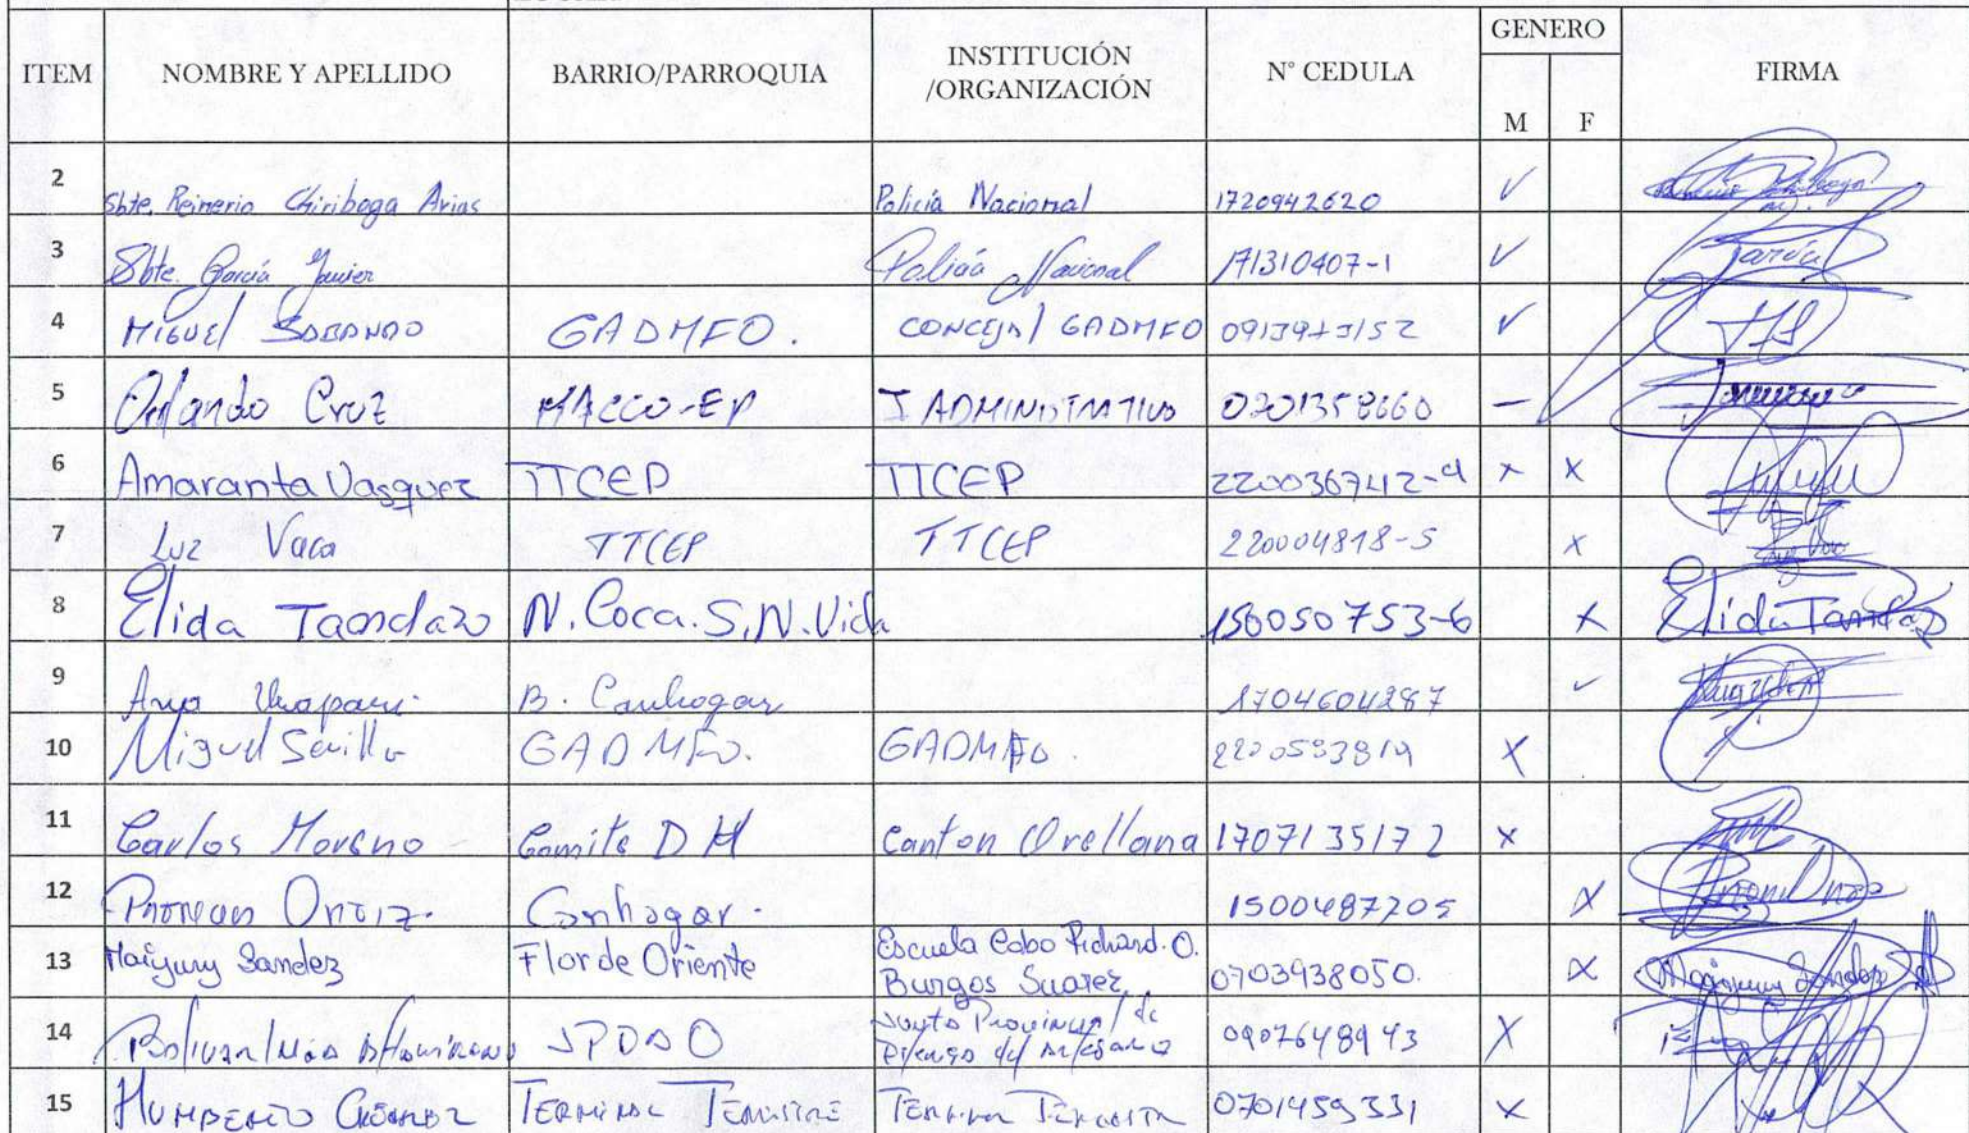 ITEM NOMBRE Y APELLIDO BARRIO/PARROQUIA INSTITUCIÓN /ORGANIZACIÓN N° CEDULA GENERO M F FIRMA
2 Sbte. Reinerio Chiriboga Arias Policía Nacional 1720942620 ✓
3 Sbte. García Javier Policía Nacional 171310407-1 ✓ García
4 Miguel GADMFO. CONCEJAL GADMFO ✓
5 Orlando Cruz MACCO-EP ADMINISTRATIVO 0201358660 –
6 Amaranta Vasquez TTCEP TTCEP x x
7 Luz Vaca TTCEP TTCEP 220004818-5 x
8 Elida Tandazo N. Coca. S.N. Vida 150050753-6 x Elida Tandazo
9 B. Canhogar 1704604287 ✓
10 Miguel Sevilla GADMFO. GADMFO. x
11 Carlos Moreno Comite D H Canton Orellana 1707135172 x
12 Ortiz. Conhogar. 1500487705 x
13 Maijury Sandez Flor de Oriente Escuela Cabo Richard. O. Burgos Suarez 0703938050. x Maijury Sandez
14 JPDAO Junta Provincial de Defensa del Artesano 0907648943 x
15 Humberto TERMINAL TERRESTRE TERMINAL TERRESTRE 0701459331 x